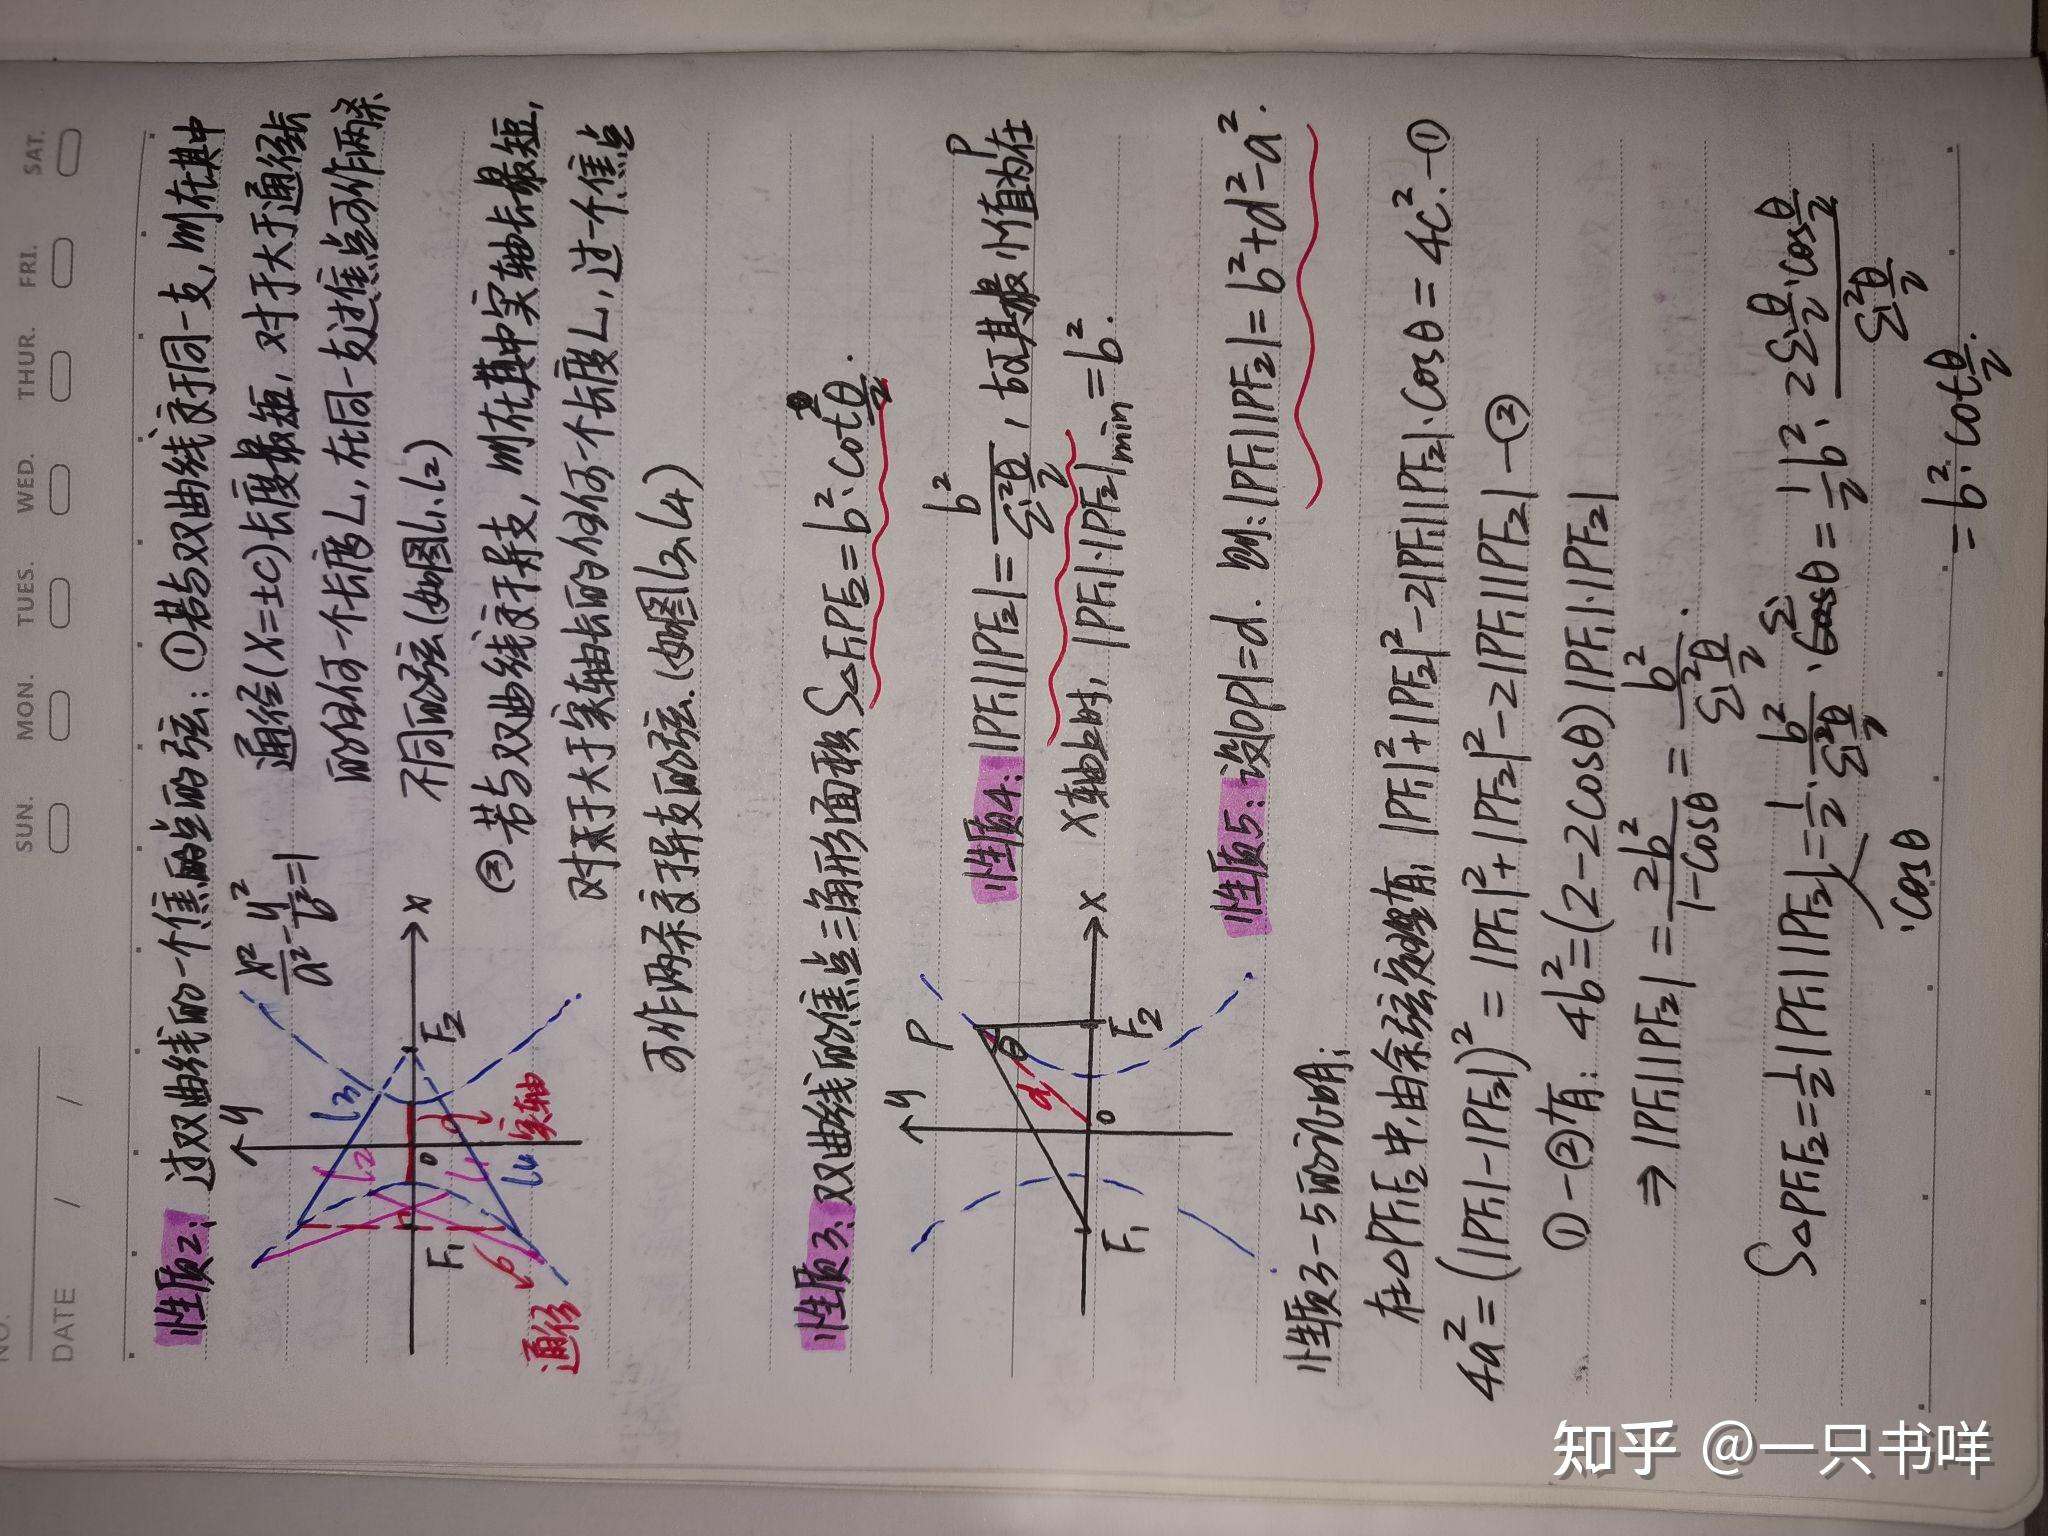 NO.
DATE / /
SUN. MON. TUES. WED. THUR. FRI. SAT.
性质2: 过双曲线的一个焦点的弦: ①若与双曲线交于同一支, 则在其中
通径(x=±c)长度最短, 对于大于通径长
的任何一个长度L, 在同一支过焦点可作两条
不同的弦(如图l₁、l₂)
②若与双曲线交于异支, 则在其中实轴长最短,
对于大于实轴长的任何一个长度L, 过一个焦点
可作两条交于异支的弦.(如图l₃、l₄)
x²/a²-y²/b²=1
y
x
F₁
F₂
o
l₁
l₂
l₃
l₄
实轴
通径
性质3: 双曲线的焦点三角形面积 S△F₁PF₂=b²·cotθ/2.
性质4: |PF₁||PF₂|=b²/Sin²θ/2, 故其最小值为P在
x轴上时, |PF₁|·|PF₂|min=b².
性质5: 设|OP|=d. 则: |PF₁||PF₂|=b²+d²-a².
y
P
θ
d
o
x
F₁
F₂
性质3-5的证明:
在△PF₁F₂中,由余弦定理有: |PF₁|²+|PF₂|²-2|PF₁||PF₂|·cosθ=4c².—①
4a²=(|PF₁|-|PF₂|)²=|PF₁|²+|PF₂|²-2|PF₁||PF₂|—②
①-②有: 4b²=(2-2cosθ)|PF₁|·|PF₂|
⇒|PF₁||PF₂|=2b²/1-cosθ=b²/Sin²θ/2.
S△PF₁F₂=1/2|PF₁||PF₂|=1/2·b²/Sin²θ/2·Sinθ=1/2b²·2Sinθ/2·cosθ/2/Sin²θ/2
·cosθ
=b²·cotθ/2.
知乎 @一只书咩